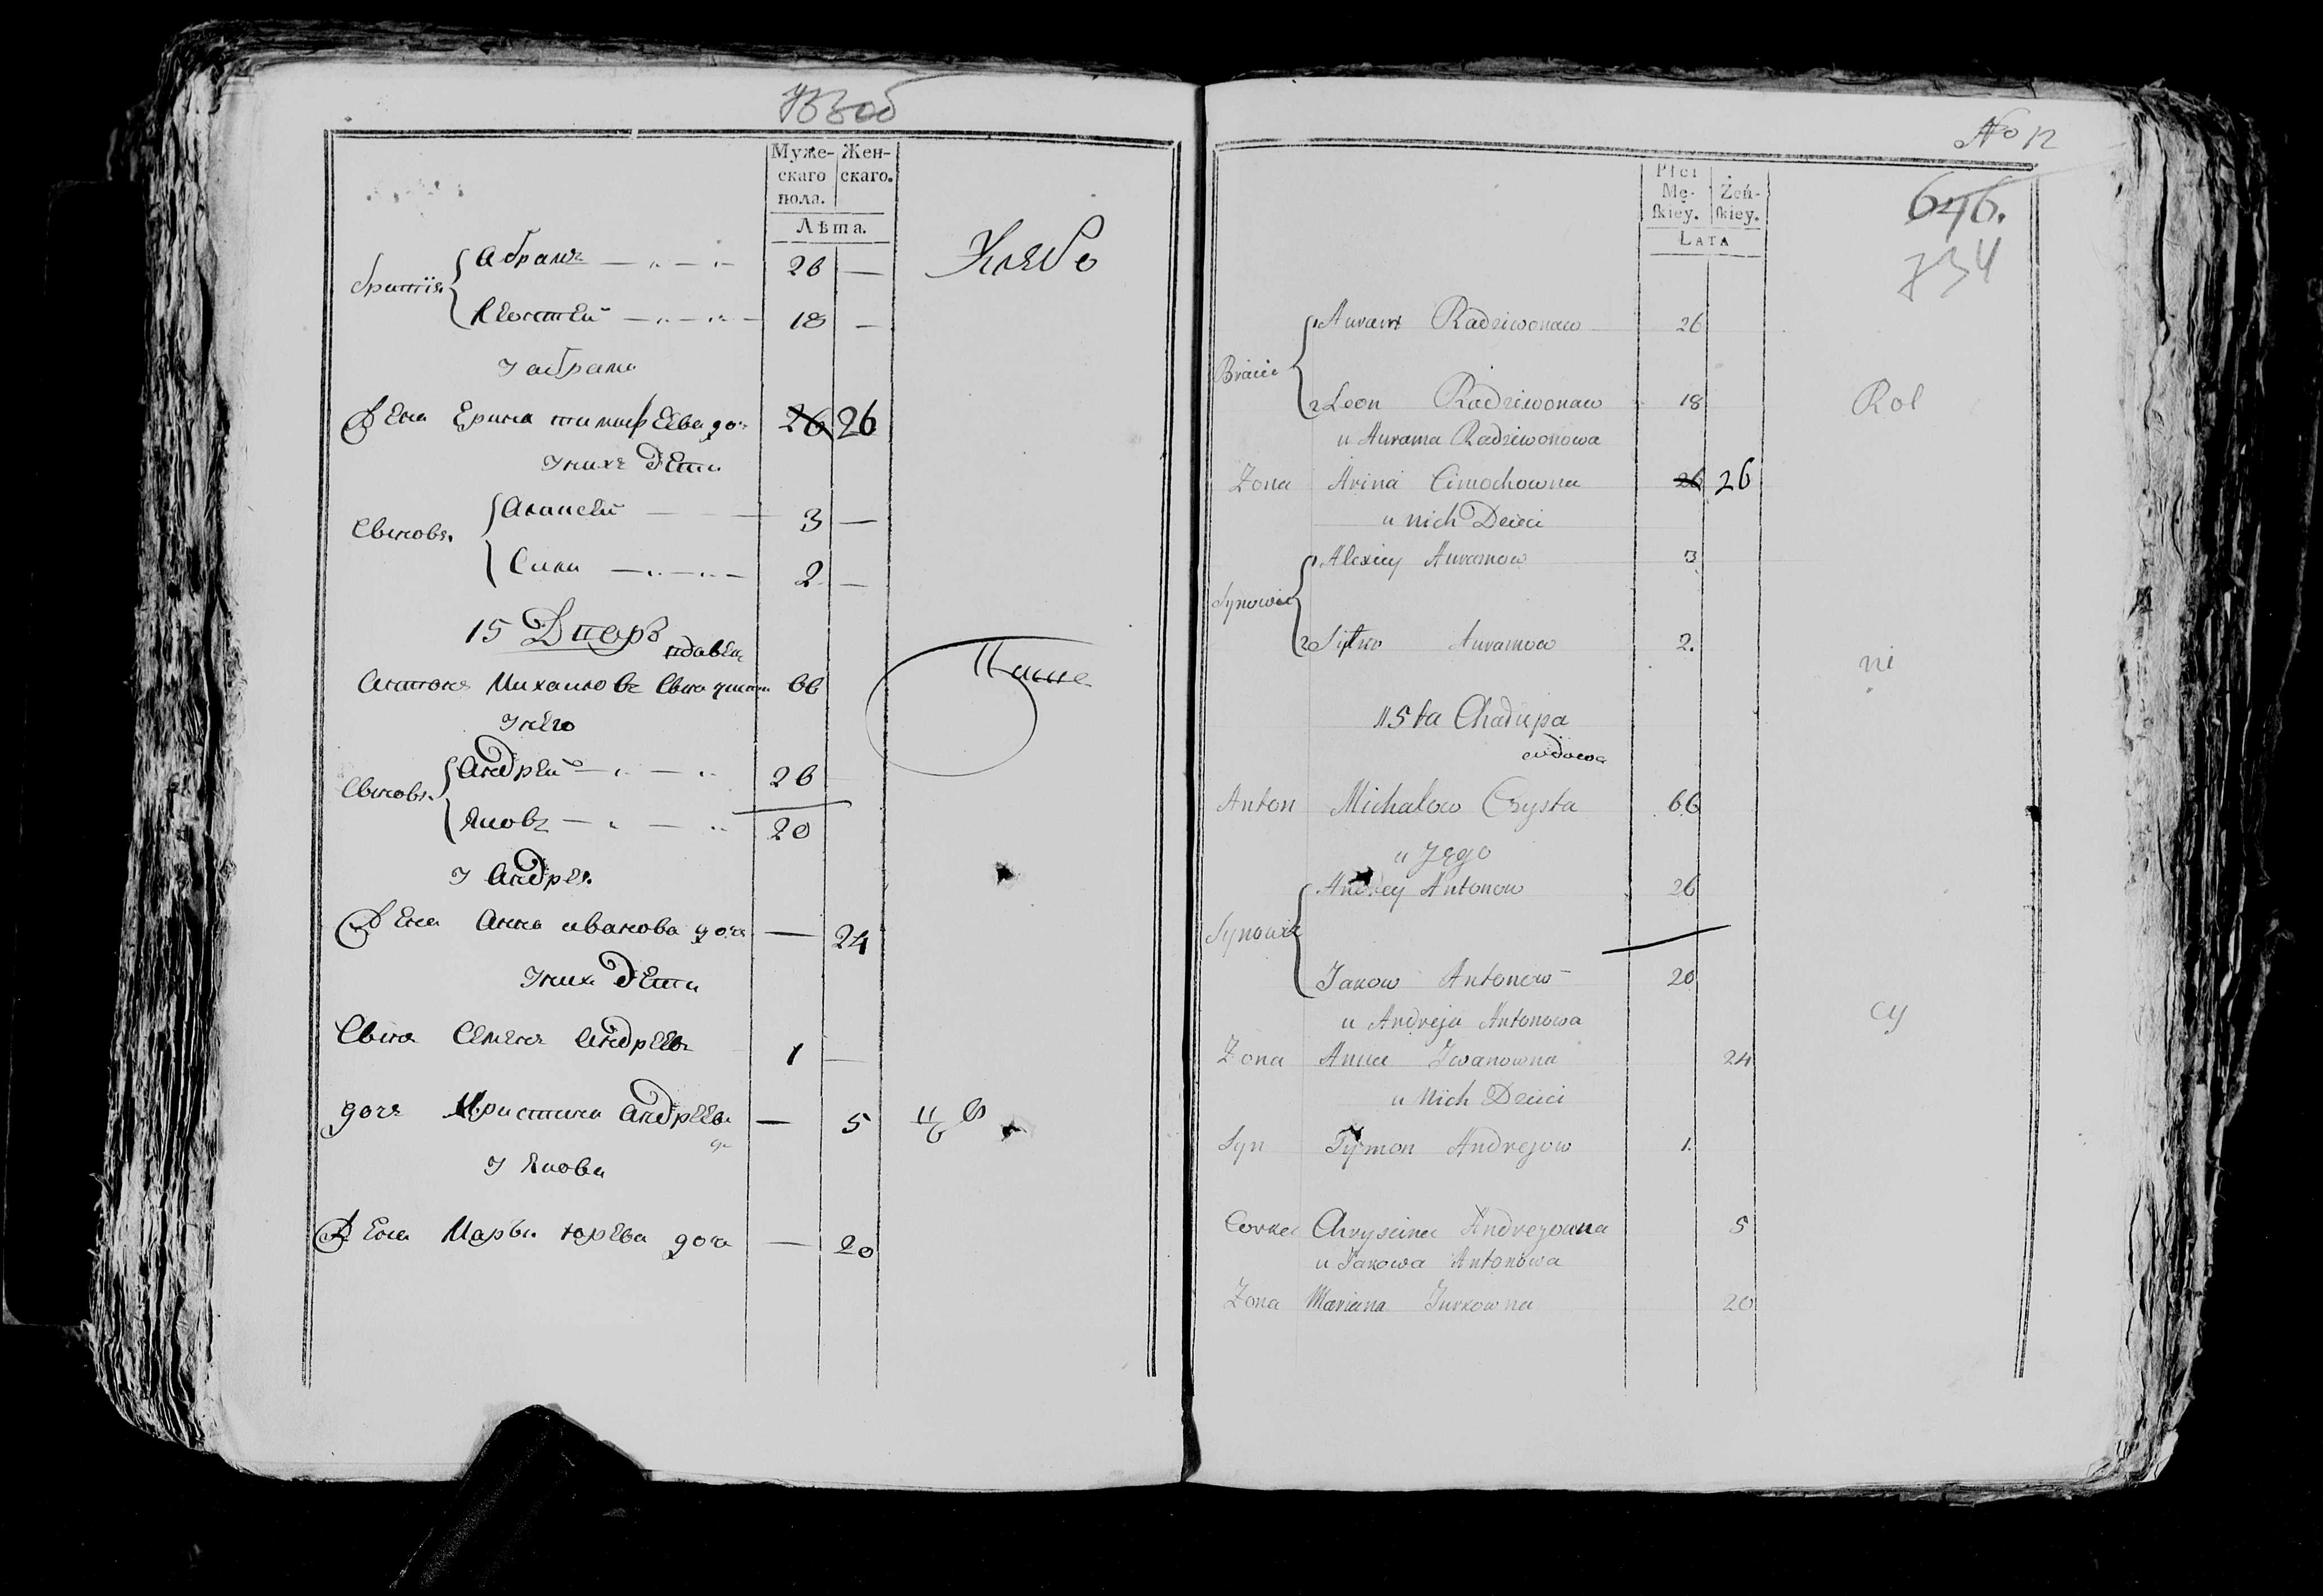 Муже-
скаго
пола.
Жен-
скаго.
Лѣта.
братія
Абрамъ 26 —
Леонтей 18 —
У абрама
Жена Ерина тимифеева дочь 26 26
У нихъ дети
Сынове
Алексей 3 —
Сила 2 —
15 Дворъ
вдовец
Антонъ Михаиловъ Сынъ чиста 66
У него
Сынове
Андрей 26
Яковъ 20
У Андрея
Жена Анна иванова дочь — 24
У нихъ дети
Сынъ Семенъ Андреевъ 1 —
дочь Христина Андреева — 5
У Якова
Жена Марья юрьева дочь — 20
No 12
646.
734
Płci
Mę-
skiey.
Żeń-
skiey.
LATA
Bracia
1 Auram Radziwonaw 26
2 Leon Radziwonaw 18
Rol
u Aurama Radziwonowa
Zona Arina Cimochowna 26 26
u nich Dzieci
Synowie
1 Alexiey Auramow 3
2 Auramow 2.
ni
15ta Chałupa
wdowa
Anton Michałow Czysta 66
u Jego
Synowie
Andrey Antonow 26
Jakow Antonow 20
cy
u Andreja Antonowa
Zona Anna Iwanowna 24
u Nich Dzieci
Syn Symon Andrejow 1.
Corka Chryscina Andrejowna 5
u Jakowa Antonowa
Zona Mariana Jurkowna 20